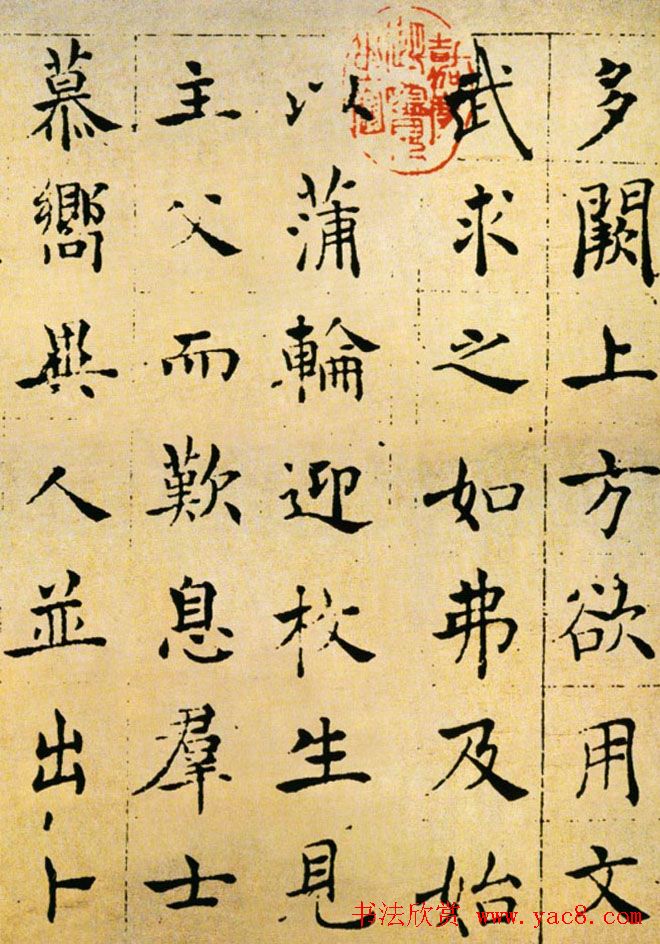 多闕上方欲用文
武求之如弗及始
以蒲輪迎枚生見
主父而歎息羣士
慕嚮異人並出卜
书法欣赏 www.yac8.com